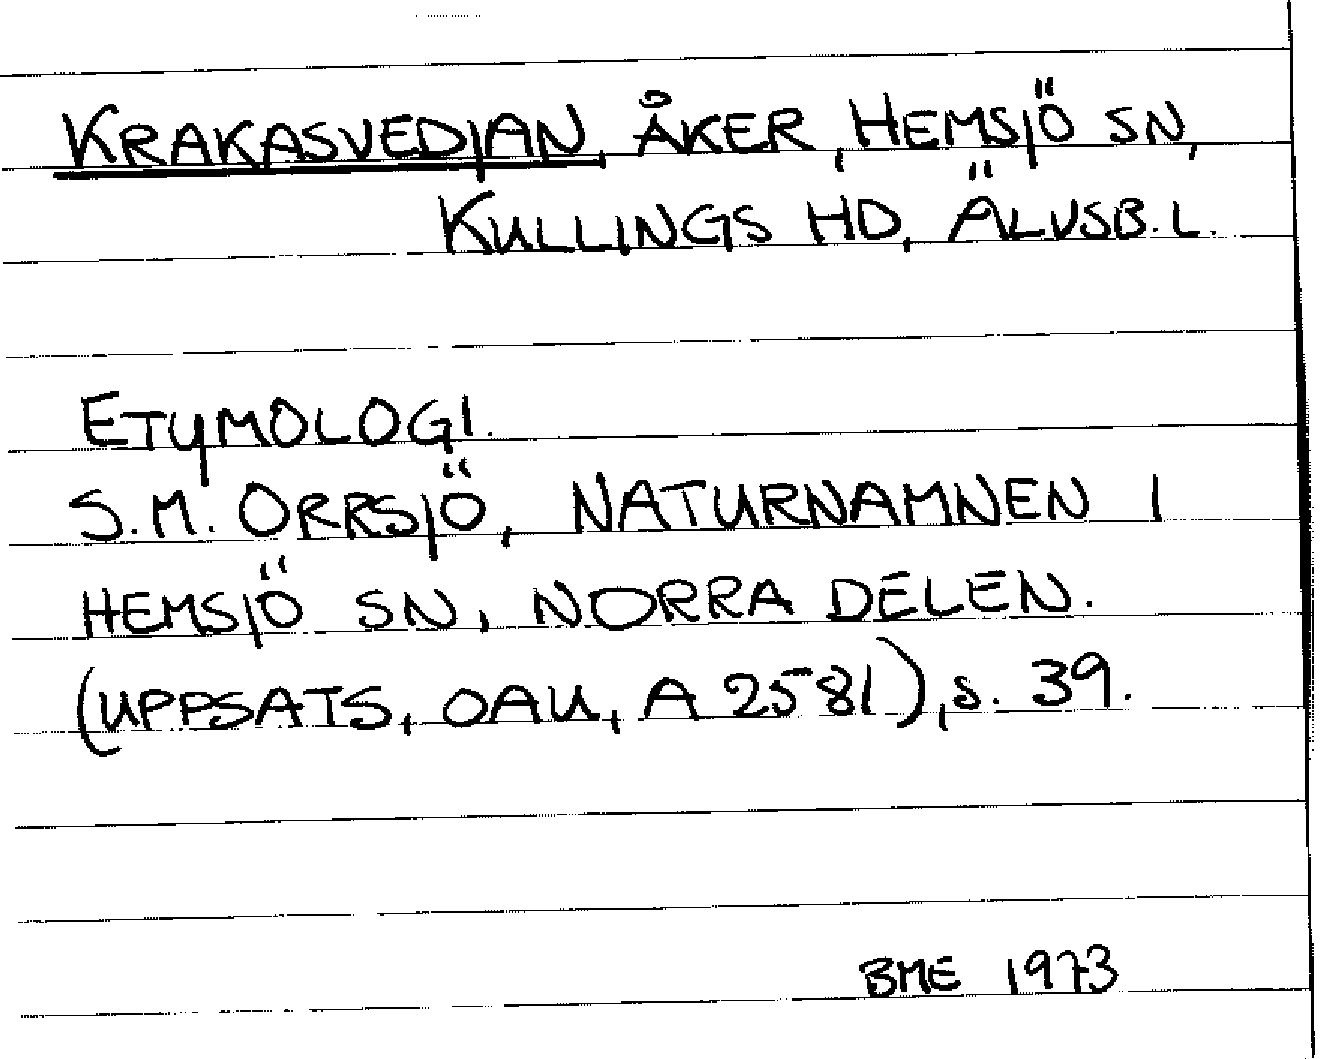 KRAKASVEDJAN, ÅKER, HEMSJÖ SN,
KULLINGS HD, ÄLVSB. L.
ETYMOLOGI.
S.M. ORRSJÖ, NATURNAMNEN I
HEMSJÖ SN, NORRA DELEN.
(UPPSATS, OAU, A 2581), s. 39.
BME 1973